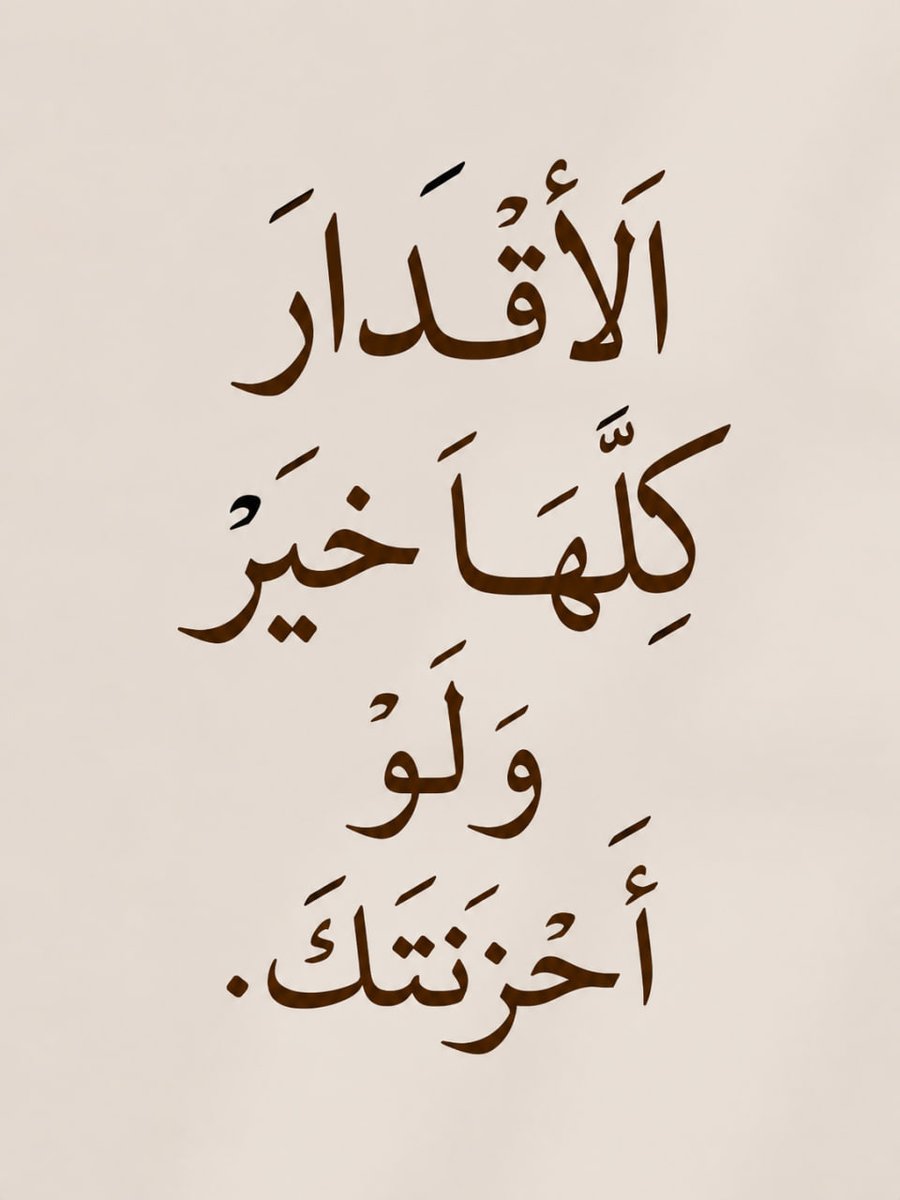 اَلأَقْدَارَ
كِلَّهَاَ خيَرْ
وَلَوْ
أَحْزنَتَكَ.